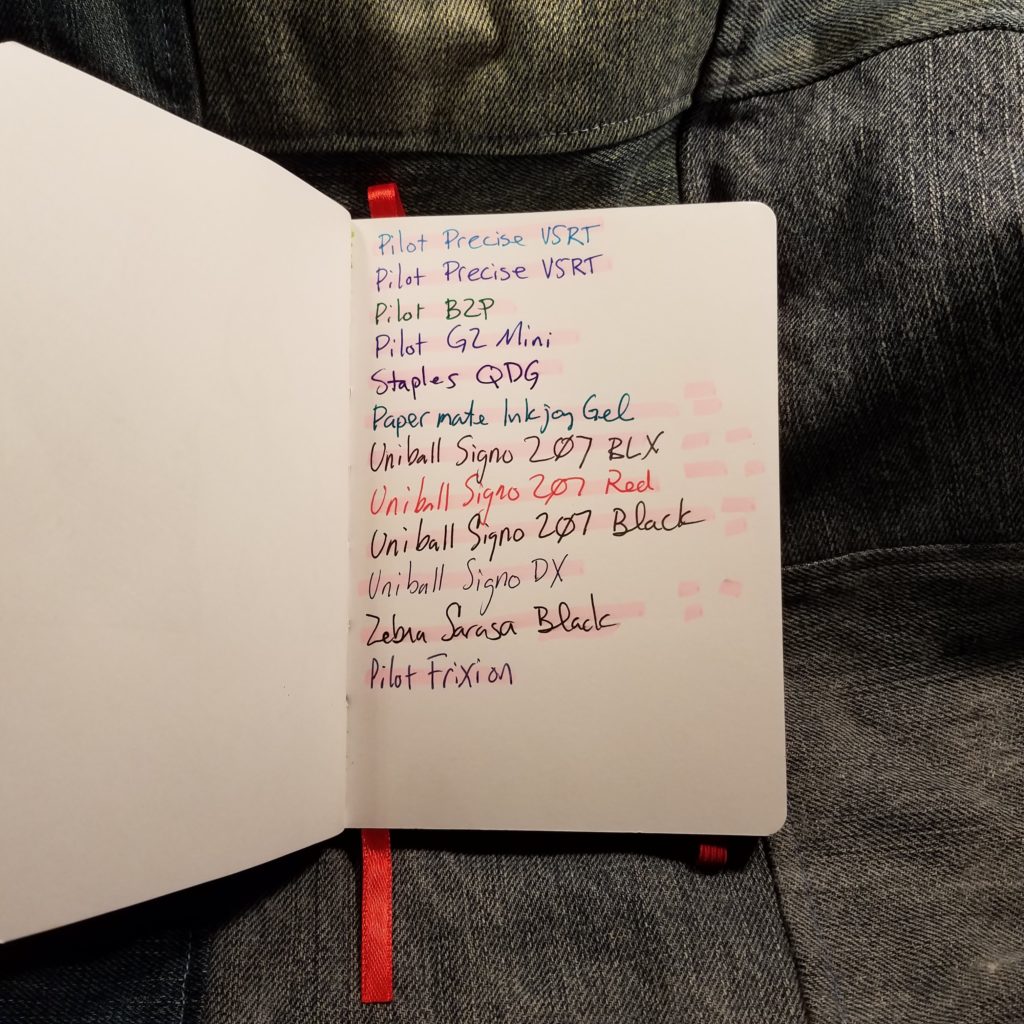 Pilot Precise V5RT
Pilot Precise V5RT
Pilot B2P
Pilot G2 Mini
Staples QDG
Papermate Inkjoy Gel
Uniball Signo 207 BLX
Uniball Signo 207 Red
Uniball Signo 207 Black
Uniball Signo DX
Zebra Sarasa Black
Pilot Frixion